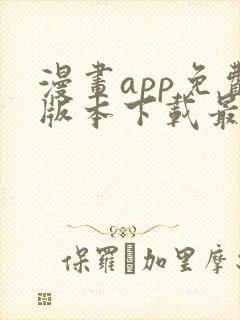 漫畫app免費
版本下載最
保羅·加里摩